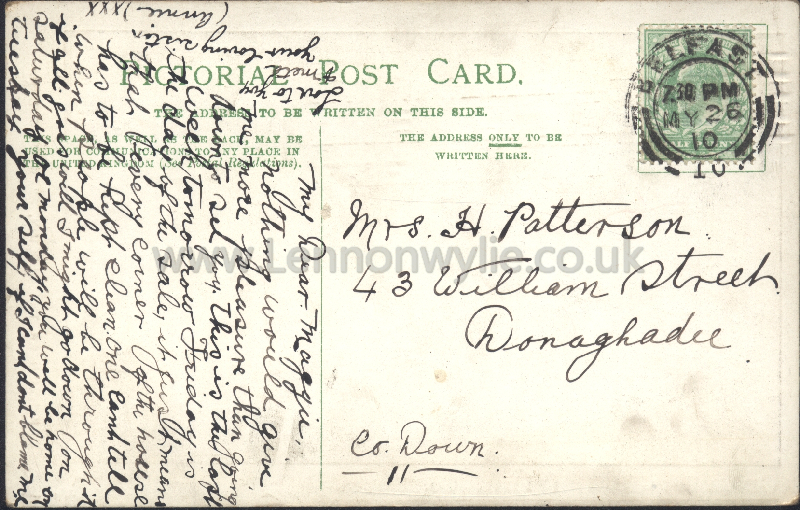 PICTORIAL POST CARD.
THE ADDRESS TO BE WRITTEN ON THIS SIDE.
THIS SPACE, AS WELL AS THE BACK, MAY BE
USED FOR COMMUNICATIONS TO ANY PLACE IN
THE UNITED KINGDOM (See Postal Regulations).
THE ADDRESS ONLY TO BE
WRITTEN HERE.
BELFAST
7.30 PM
MY 26
10
Mrs. H. Patterson
43 William Street
Donaghadee
Co. Down
My Dear Maggie,
nothing would give
me more pleasure than going
down to see you, this is the last
week tomorrow Friday is
the last day of the sale, it just means
that every corner of the house
has to be kept clean one can't tell
when people will be through it
if all goes well I might go down on
Saturday if monday you will be home by
Tuesday your self, if I can't dont blame me
Love to you
your loving sister
(Annie) xxx
www.Lennonwylie.co.uk